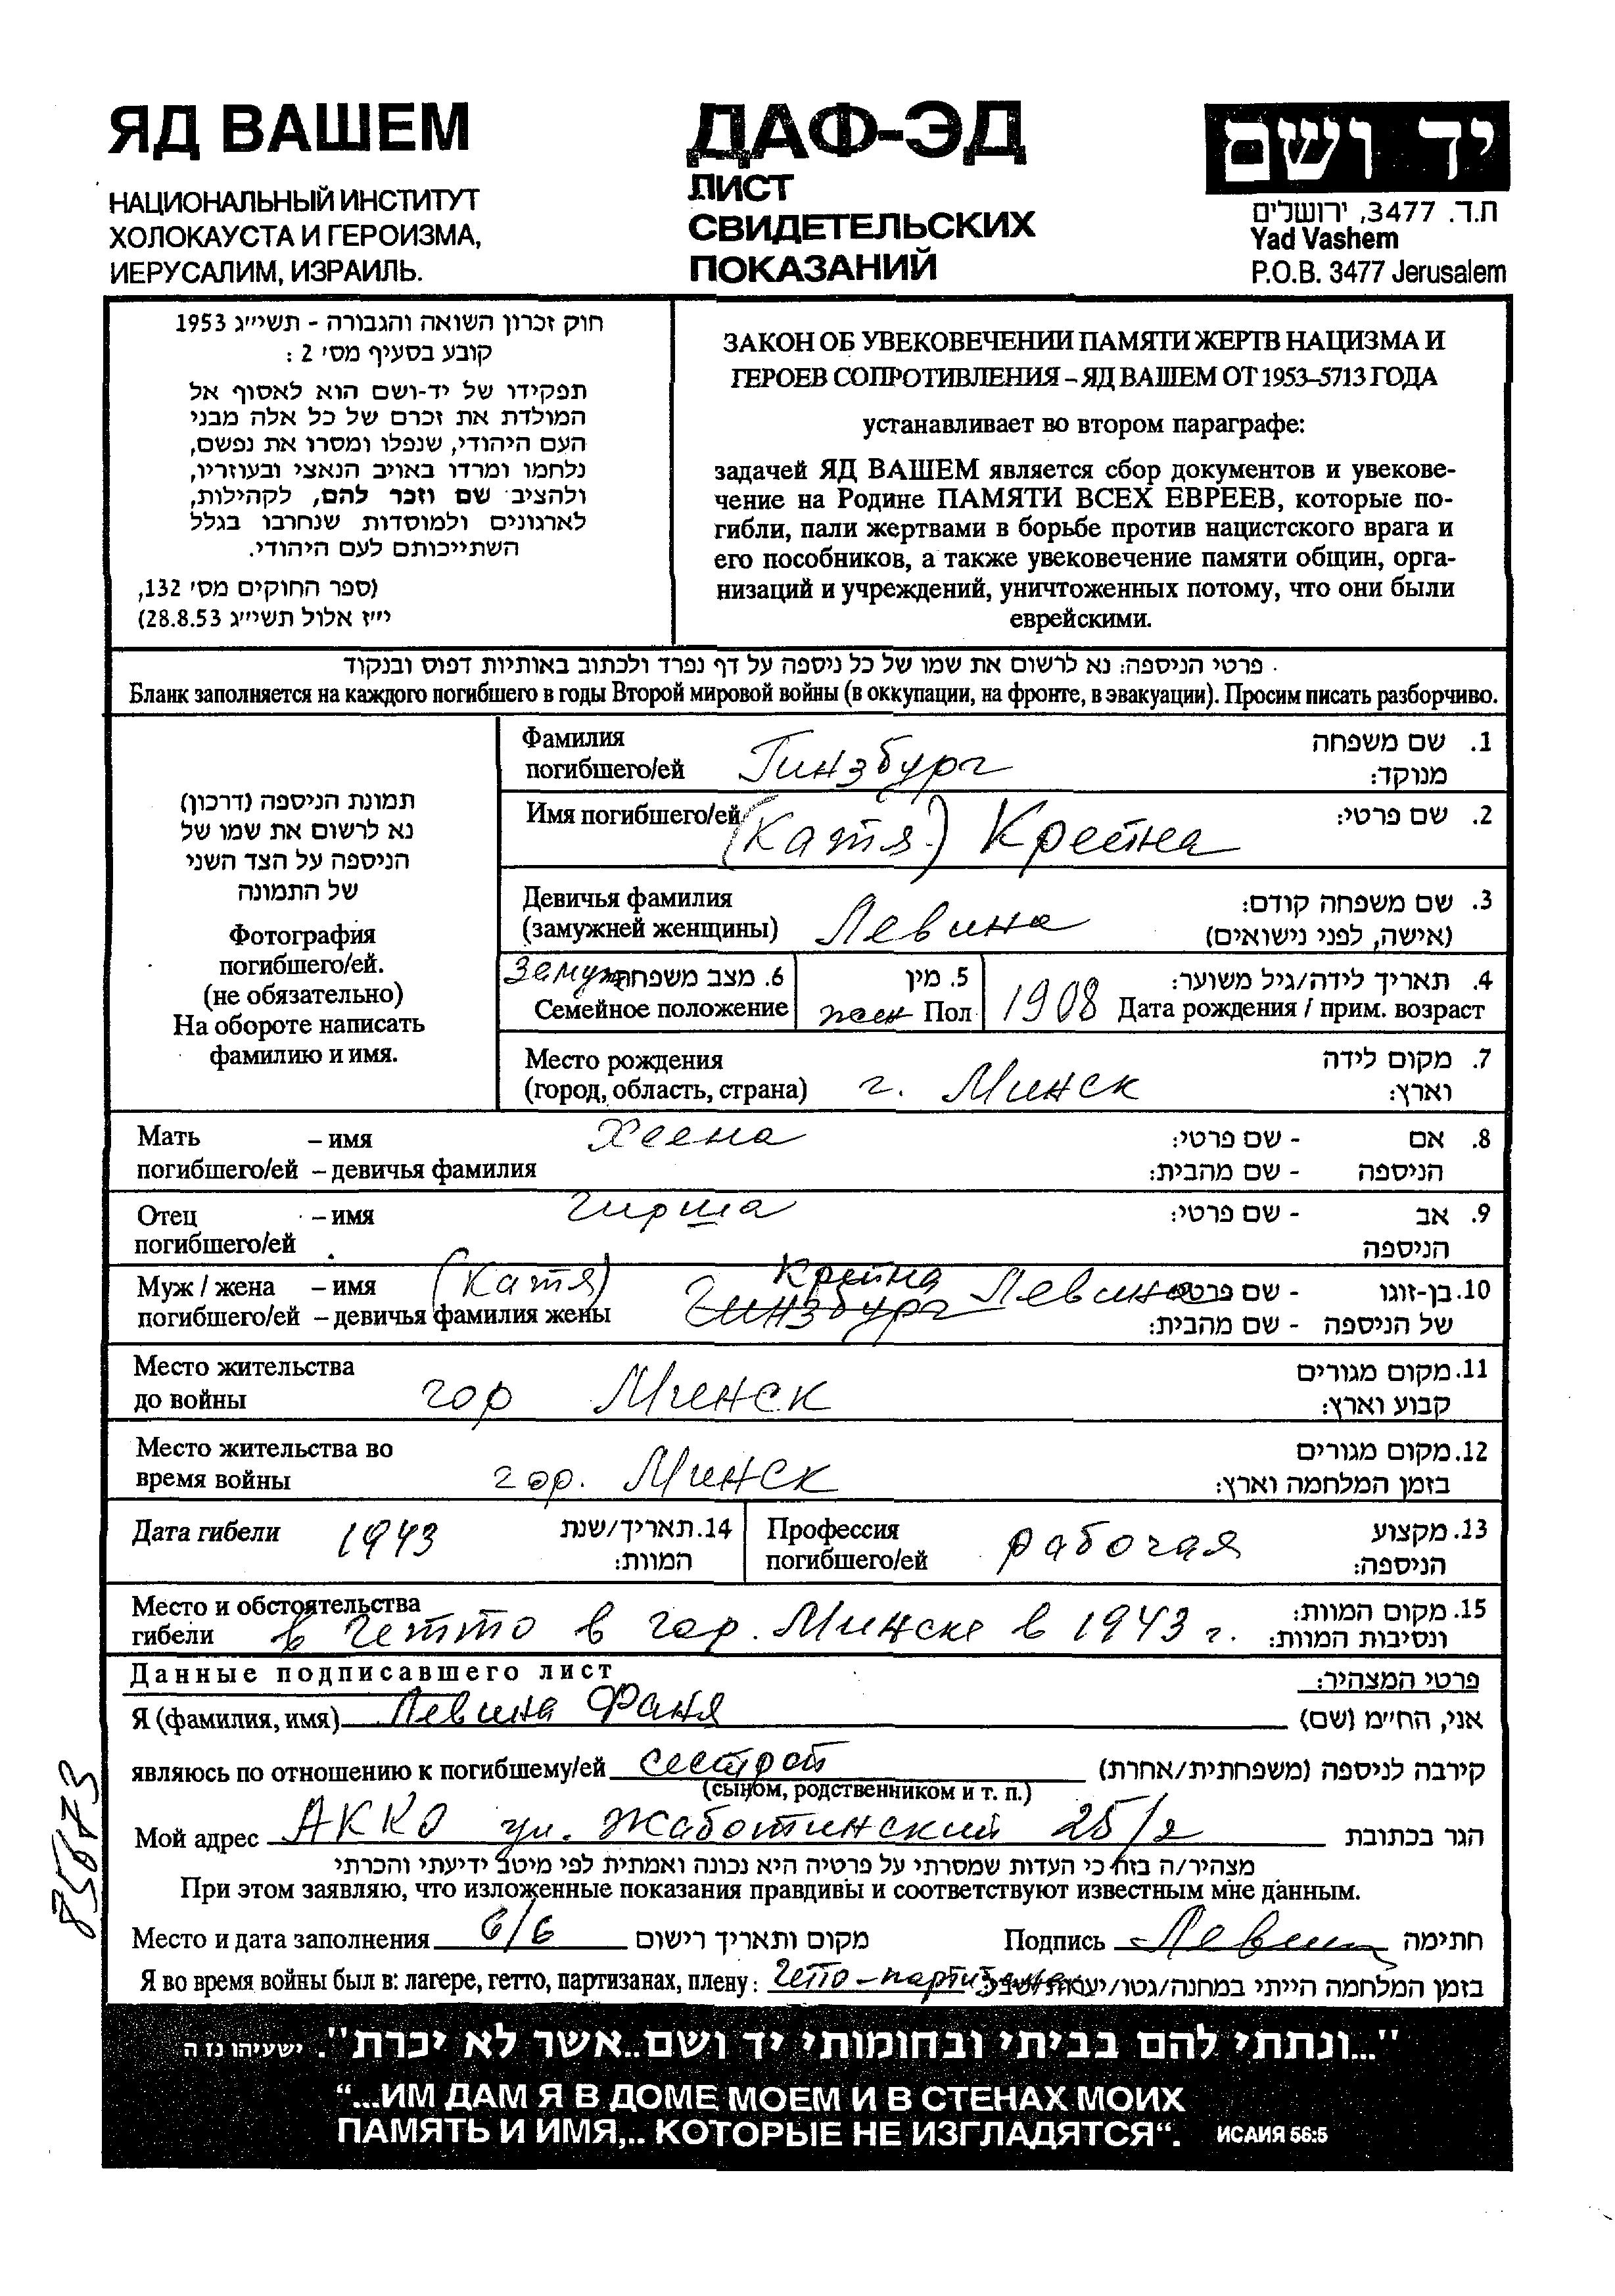 ЯД ВАШЕМ
НАЦИОНАЛЬНЫЙ ИНСТИТУТ
ХОЛОКАУСТА И ГЕРОИЗМА,
ИЕРУСАЛИМ, ИЗРАИЛЬ.
ДАФ-ЭД
ЛИСТ
СВИДЕТЕЛЬСКИХ
ПОКАЗАНИЙ
יד ושם
ת.ד. 3477, ירושלים
Yad Vashem
P.O.B. 3477 Jerusalem
חוק זכרון השואה והגבורה - תשי״ג 1953
קובע בסעיף מס׳ 2 :
תפקידו של יד-ושם הוא לאסוף אל
המולדת את זכרם של כל אלה מבני
העם היהודי, שנפלו ומסרו את נפשם,
נלחמו ומרדו באויב הנאצי ובעוזריו,
ולהציב שם וזכר להם, לקהילות,
לארגונים ולמוסדות שנחרבו בגלל
השתייכותם לעם היהודי.
(ספר החוקים מס׳ 132,
י״ז אלול תשי״ג 28.8.53)
ЗАКОН ОБ УВЕКОВЕЧЕНИИ ПАМЯТИ ЖЕРТВ НАЦИЗМА И
ГЕРОЕВ СОПРОТИВЛЕНИЯ – ЯД ВАШЕМ ОТ 1953–5713 ГОДА
устанавливает во втором параграфе:
задачей ЯД ВАШЕМ является сбор документов и увекове-
чение на Родине ПАМЯТИ ВСЕХ ЕВРЕЕВ, которые по-
гибли, пали жертвами в борьбе против нацистского врага и
его пособников, а также увековечение памяти общин, орга-
низаций и учреждений, уничтоженных потому, что они были
еврейскими.
פרטי הניספה: נא לרשום את שמו של כל ניספה על דף נפרד ולכתוב באותיות דפוס ובנקוד
Бланк заполняется на каждого погибшего в годы Второй мировой войны (в оккупации, на фронте, в эвакуации). Просим писать разборчиво.
תמונת הניספה (דרכון)
נא לרשום את שמו של
הניספה על הצד השני
של התמונה
Фотография
погибшего/ей.
(не обязательно)
На обороте написать
фамилию и имя.
Фамилия 1. שם משפחה
погибшего/ей Гинзбург מנוקד:
Имя погибшего/ей (Катя) Крейна 2. שם פרטי:
Девичья фамилия 3. שם משפחה קודם:
(замужней женщины) Левина (אישה, לפני נישואים)
Замуж 6. מצב משפחתי 5. מין 1908 4. תאריך לידה/גיל משוער:
Семейное положение жен Пол Дата рождения / прим. возраст
Место рождения 7. מקום לידה
(город, область, страна) г. Минск וארץ:
Мать – имя Хеена 8. אם - שם פרטי:
погибшего/ей – девичья фамилия הניספה - שם מהבית:
Отец – имя Гирша 9. אב - שם פרטי:
погибшего/ей הניספה
Муж / жена – имя (Катя) Крейна Левина 10. בן-זוגו - שם פרטי:
погибшего/ей – девичья фамилия жены Гинзбург של הניספה - שם מהבית:
Место жительства 11. מקום מגורים
до войны гор Минск קבוע וארץ:
Место жительства во 12. מקום מגורים
время войны гор. Минск בזמן המלחמה וארץ:
Дата гибели 1943 14. תאריך/שנת Профессия рабочая 13. מקצוע
המוות: погибшего/ей הניספה:
Место и обстоятельства 15. מקום המוות:
гибели в гетто в гор. Минске в 1943 г. ונסיבות המוות:
Данные подписавшего лист פרטי המצהיר:
Я (фамилия, имя) Левина Фаня אני, הח״מ (שם)
являюсь по отношению к погибшему/ей сестрой קירבה לניספה (משפחתית/אחרת)
(сыном, родственником и т. п.)
Мой адрес АККО ул. Жаботинский 25/2 הגר בכתובת
מצהיר/ה בזה כי העדות שמסרתי על פרטיה היא נכונה ואמתית לפי מיטב ידיעתי והכרתי
При этом заявляю, что изложенные показания правдивы и соответствуют известным мне данным.
Место и дата заполнения 6/6 מקום ותאריך רישום Подпись Левина חתימה
Я во время войны был в: лагере, гетто, партизанах, плену: Гетто – בזמן המלחמה הייתי במחנה/גטו/
85673
"...ונתתי להם בביתי ובחומותי יד ושם..אשר לא יכרת". ישעיהו נז ה
“...ИМ ДАМ Я В ДОМЕ МОЕМ И В СТЕНАХ МОИХ
ПАМЯТЬ И ИМЯ,.. КОТОРЫЕ НЕ ИЗГЛАДЯТСЯ“. ИСАИЯ 56:5